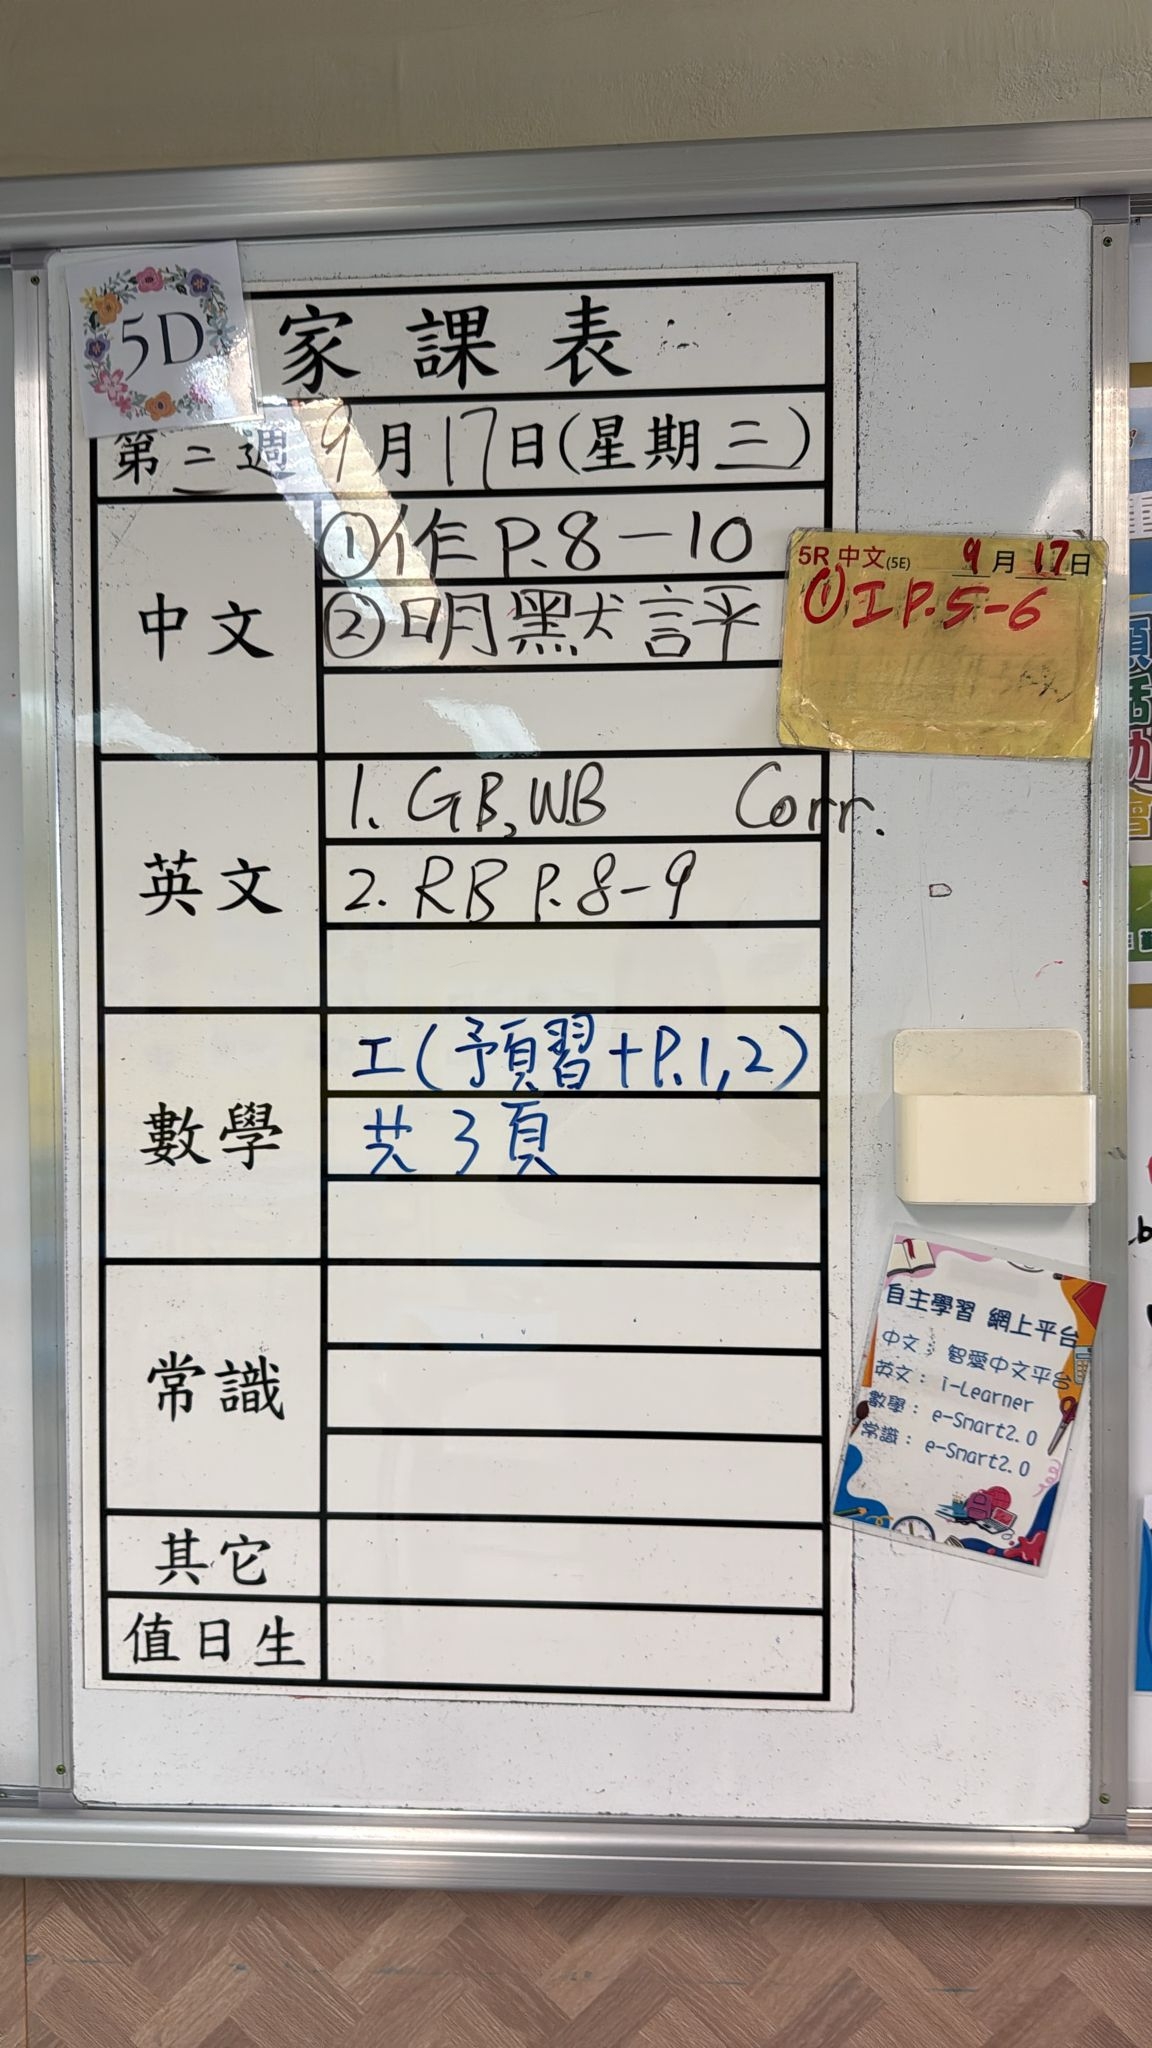 5D
家課表
第二週 9月17日(星期三)
中文
①作 P.8-10
②明默評
5R 中文(5E) 9月17日
①工 P.5-6
英文
1. GB, WB Corr.
2. RB P.8-9
數學
工(預習+P.1,2)
共3頁
常識
其它
值日生
自主學習 網上平台
中文：智愛中文平台
英文：i-Learner
數學：e-Smart2.0
常識：e-Smart2.0